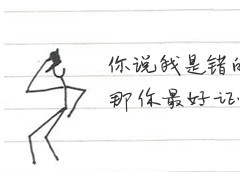 你说我是错
那你最好证